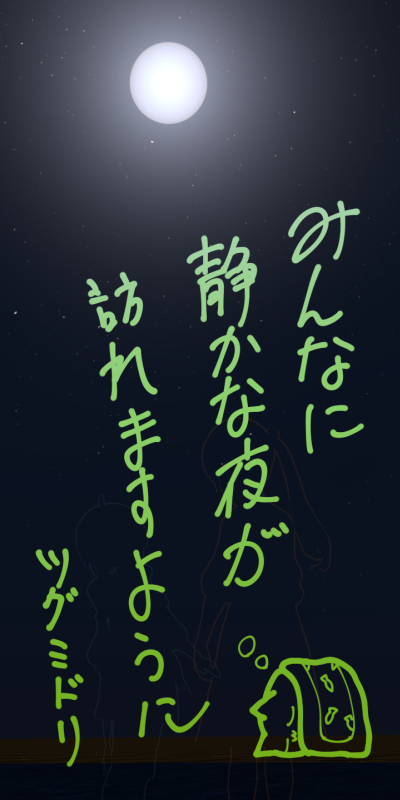 みんなに
静かな夜が
訪れますように
ツグミドリ